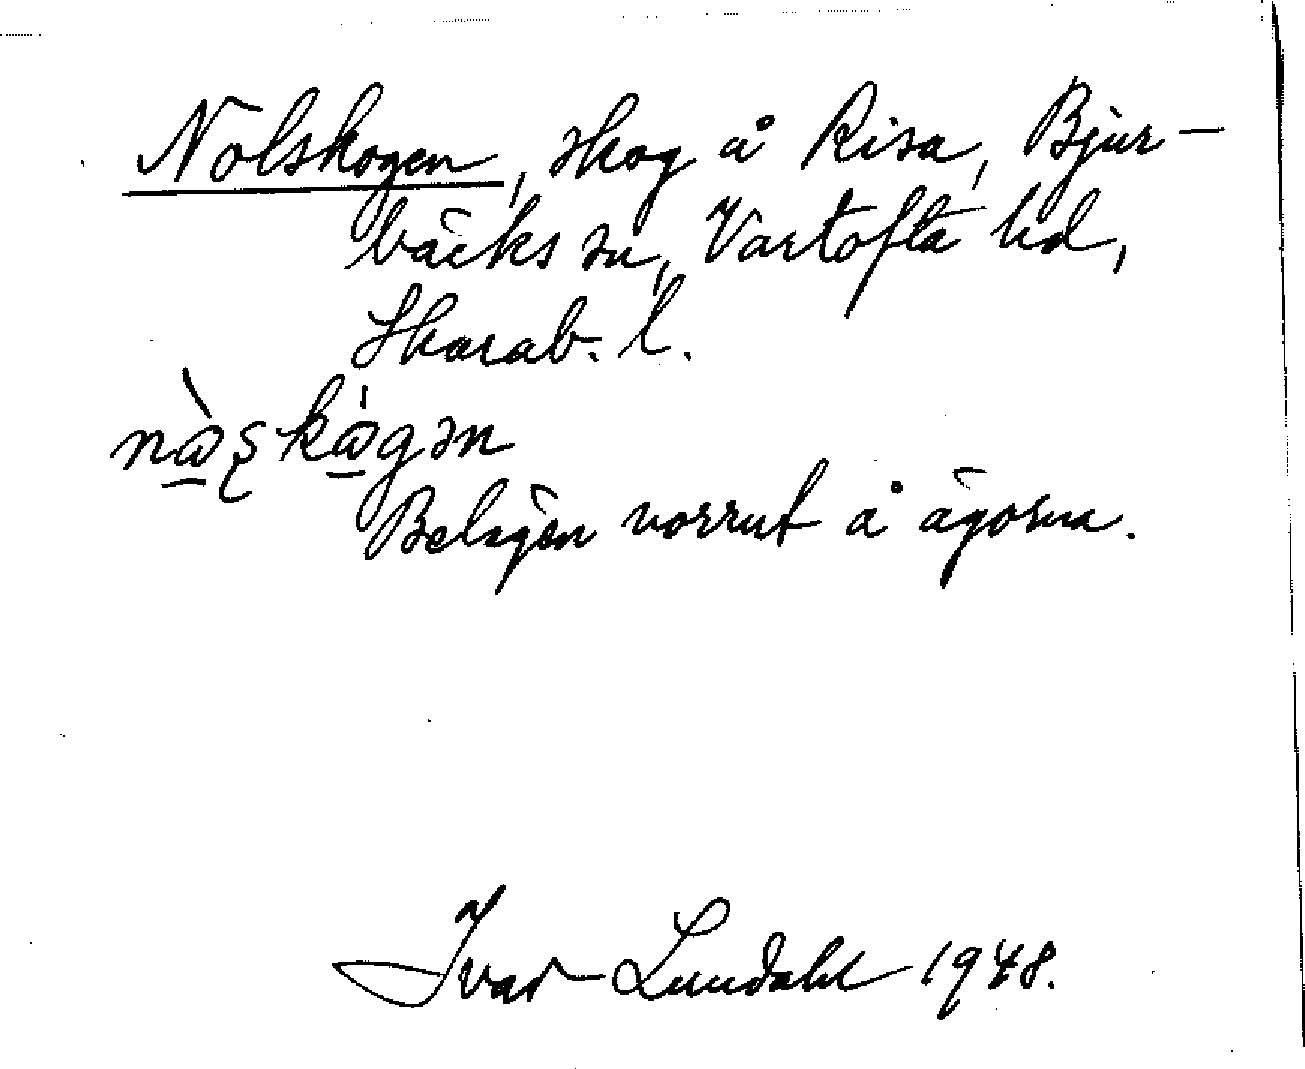 Nolskogen, skog å Risa, Bjur-
bäcks sn, Vartofta hd,
Skarab. l.
nàʂkágən
Belägen norrut å ägorna.
Ivar Lundahl 1948.